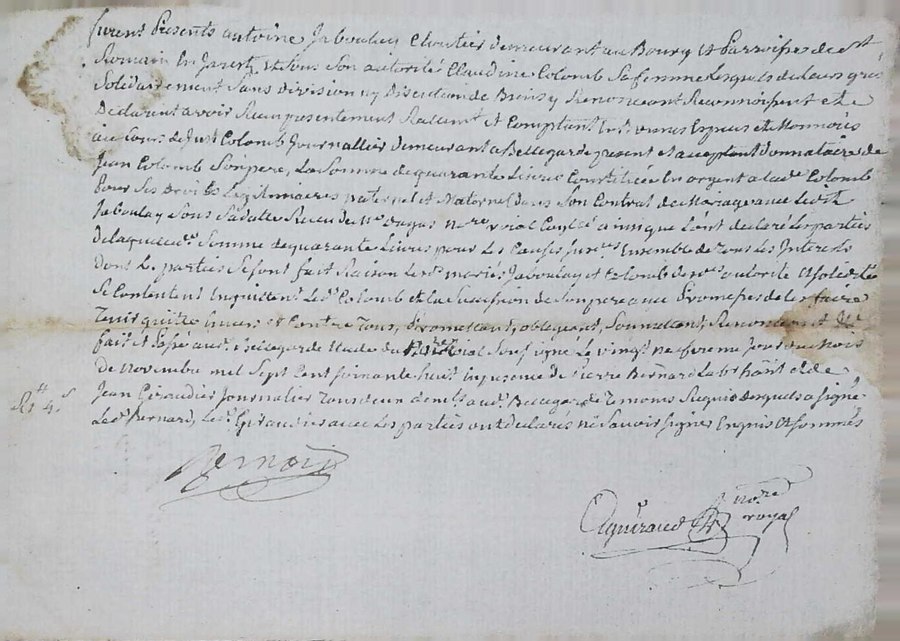 furent Présents antoine Jaboulay Cloutier demeurant au Bourg et Parroisse de St
Romain En Jarest, et sous son autorité Claudine Colomb sa femme Lesquels de leurs gres
Solidairement sans division ny discution de Biens y Renonceant Reconnoissent et
Declarent avoir Reçu presentement Reallemt et Comptant En Espèces et Monnoies
au Cours de Just Colomb Journallier demeurant a Bellegarde present et acceptant donnataire de
Jean Colomb son père, La Somme de quarante Livres Constituée En argent a lade Colomb
pour ses droits Légitimaires paternel et Maternel dans son Contrat de Mariage avec ledit
Jaboulay sous sa datte Reçu de Me dugas nre Royal ainsi que l'ont declaré Les parties
de laquelle Somme de quarante Livres pour Les Causes Ensemble de tous Les Interets
dont Les parties se sont fait Raison Les ds mariés Jaboulay et Colomb de autorité et solidité
Se Contentent En quittent Led. Colomb et la Succession de son pere avec Promesses de les faire
Tenir quitte Envers et Contre Tous, Promettant, obligeant, Soumettant, Renonceant &c
fait et passé aud. Bellegarde Etude du nre Royal Soussigné Le vingt neufieme jour du Mois
de novembre mil Sept Cent soixante huit En presence de Pierre Bernard et de
Jean Giraudier Journalier Tous deux demts aud. Bellegarde Temoins Requis desquels a signé
Led. Bernard, Led. Giraudier avec Les parties ont declarés ne Savoir signer Enquis et sommés
Rs 4s
Bernard
Giraud nore
royal